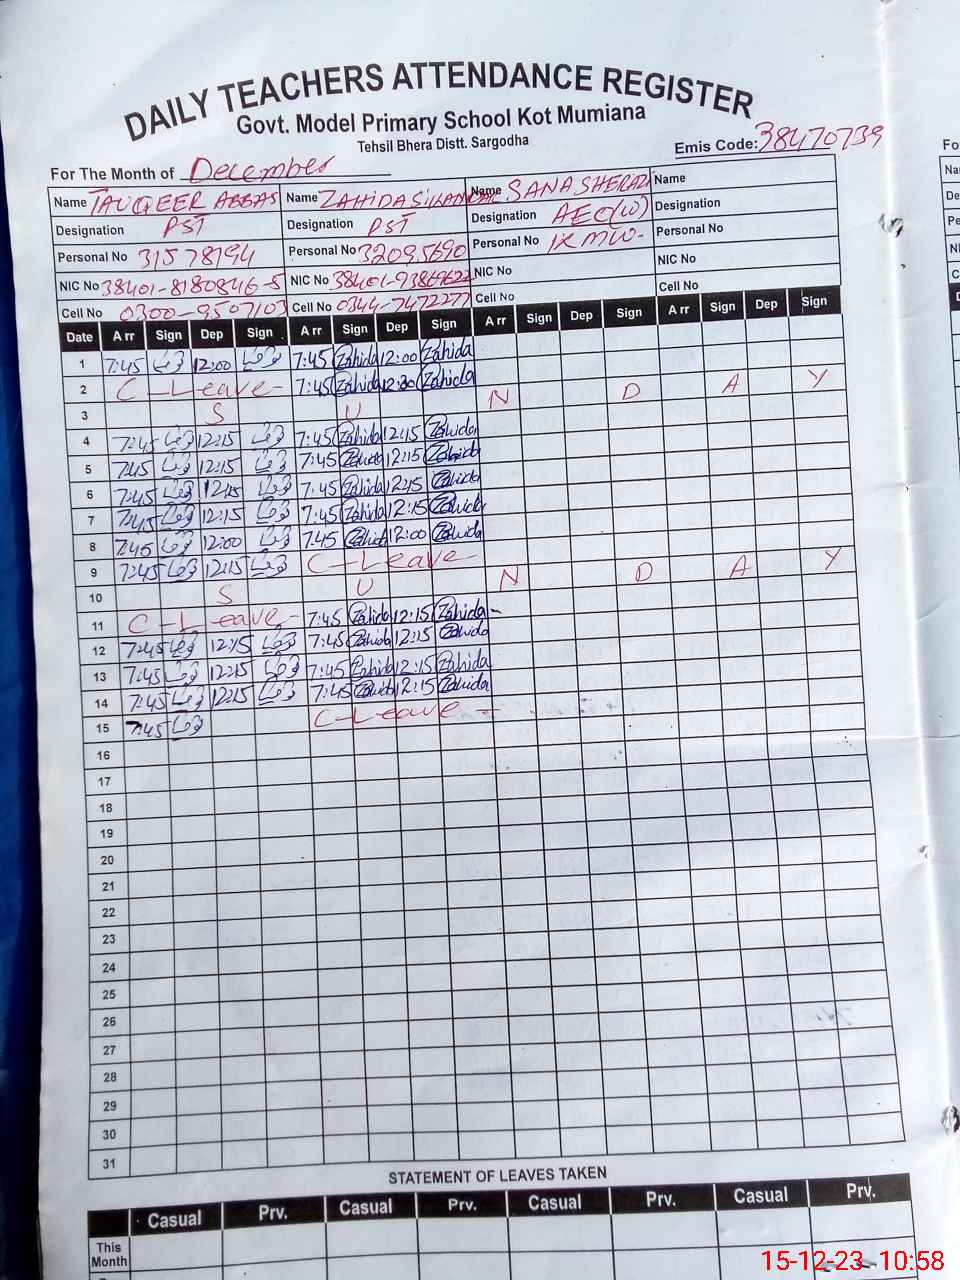 DAILY TEACHERS ATTENDANCE REGISTER
Govt. Model Primary School Kot Mumiana
Tehsil Bhera Distt. Sargodha
Emis Code: 38470739
For The Month of December
Name TAUQEER ABBAS Name ZAHIDA Name SANA SHERAZI Name
Designation PST Designation PST Designation AEO(W) Designation
Personal No 31578194 Personal No 32095690 Personal No Personal No
NIC No 38401-8180846-5 NIC No 38401-9386962 NIC No NIC No
Cell No 0300-9507103 Cell No 0344-7472277 Cell No Cell No
Date A rr Sign Dep Sign A rr Sign Dep Sign A rr Sign Dep Sign A rr Sign Dep Sign
1 7:45 12:00 7:45 Zahida 12:00 Zahida
2 C-Leave- 7:45 Zahida 12:30 Zahida
3 S U N D A Y
4 7:45 12:15 7:45 Zahida 12:15 Zahida
5 7:45 12:15 7:45 Zahida 12:15 Zahida
6 7:45 12:15 7:45 Zahida 12:15 Zahida
7 7:45 12:15 7:45 Zahida 12:15 Zahida
8 7:45 12:00 7:45 Zahida 12:00 Zahida
9 7:45 12:15 C-Leave-
10 S U N D A Y
11 C-Leave- 7:45 Zahida 12:15 Zahida -
12 7:45 12:15 7:45 Zahida 12:15 Zahida
13 7:45 12:15 7:45 Zahida 12:15 Zahida
14 7:45 12:15 7:45 Zahida 12:15 Zahida
15 7:45 C-Leave -
16
17
18
19
20
21
22
23
24
25
26
27
28
29
30
31
STATEMENT OF LEAVES TAKEN
Casual Prv. Casual Prv. Casual Prv. Casual Prv.
This
Month
15-12-23 10:58